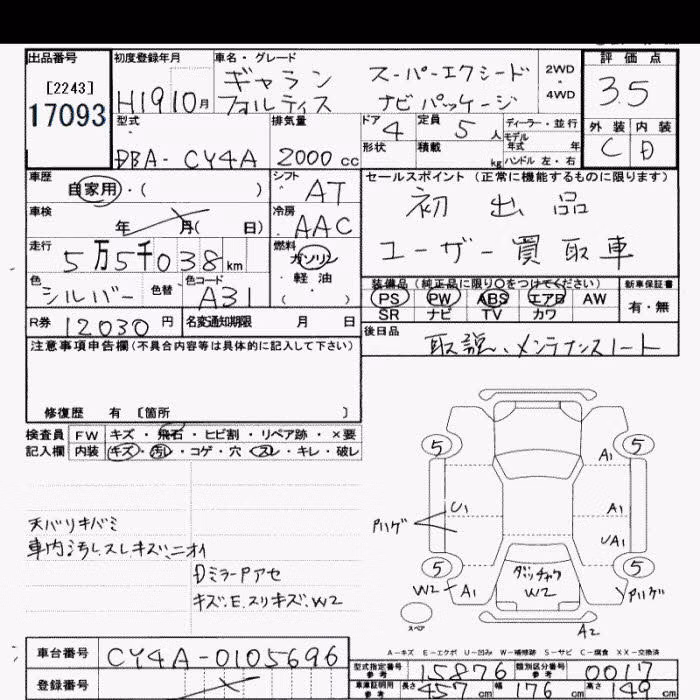 出品番号 初度登録年月 車名・グレード 評価点
[2243] ギャラン スーパーエクシード 2WD
17093 H19 10月 フォルティス ナビパッケージ 4WD 3.5
型式 排気量 ドア 4 定員 5人 ディーラー・並行 外装 内装
モデル年式 年
DBA-CY4A 2000cc 形状 積載 kg ハンドル 左・右 C D
車歴 シフト セールスポイント(正常に機能するものに限ります)
自家用・( ) AT 初出品
車検 冷房
年 月( 日) AAC ユーザー買取車
走行 燃料
5万5千038km ガソリン
軽油
( )
色 色替 色コード 装備品(純正品に限り○をつけてください) 新車保証書
シルバー A31 PS PW ABS エアB AW 有・無
SR ナビ TV カワ
R券 12030円 名変通知期限 月 日 後日品
注意事項申告欄(不具合内容等は具体的に記入して下さい) 取説、メンテナンスノート
修復歴 有 〔箇所 〕
検査員 FW キズ・飛石・ヒビ割・リペア跡・×要
記入欄 内装 キズ・汚れ・コゲ・穴・スレ・キレ・破レ
5 5
A1
U1 A1
Pハゲ UA1
天バリキバミ
車内汚れ、スレ、キズ、ニオイ
5 5
DミラーPアセ ダッチャク
キズ.E.スリキズ.W2 W2 A1 W2 Pハゲ
スペア A2
A-キズ E-エクボ U-凹み W-補修跡 S-サビ C-腐食 XX-交換済
車台番号 CY4A-0105696 型式指定番号 参考 15876 類別区分番号 参考 0017
登録番号 車庫証明用 参考 長さ 457cm 幅 176cm 高さ 149cm